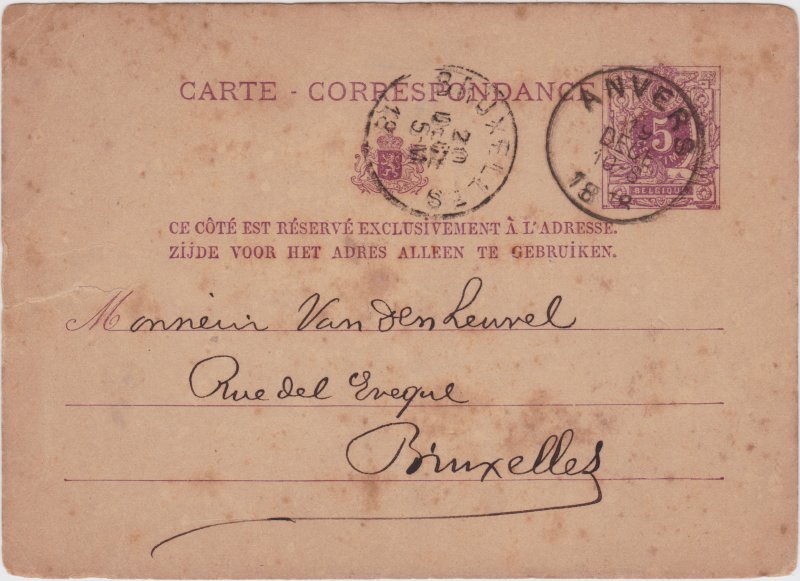 CARTE - CORRESPONDANCE
BRUXELLES
20
DEC
5-M
18
ANVERS
19
DEC
18
5
BELGIQUE
CE CÔTÉ EST RÉSERVÉ EXCLUSIVEMENT À L'ADRESSE.
ZIJDE VOOR HET ADRES ALLEEN TE GEBRUIKEN.
Monsieur Vandenheuvel
Rue del Eveque
Bruxelles